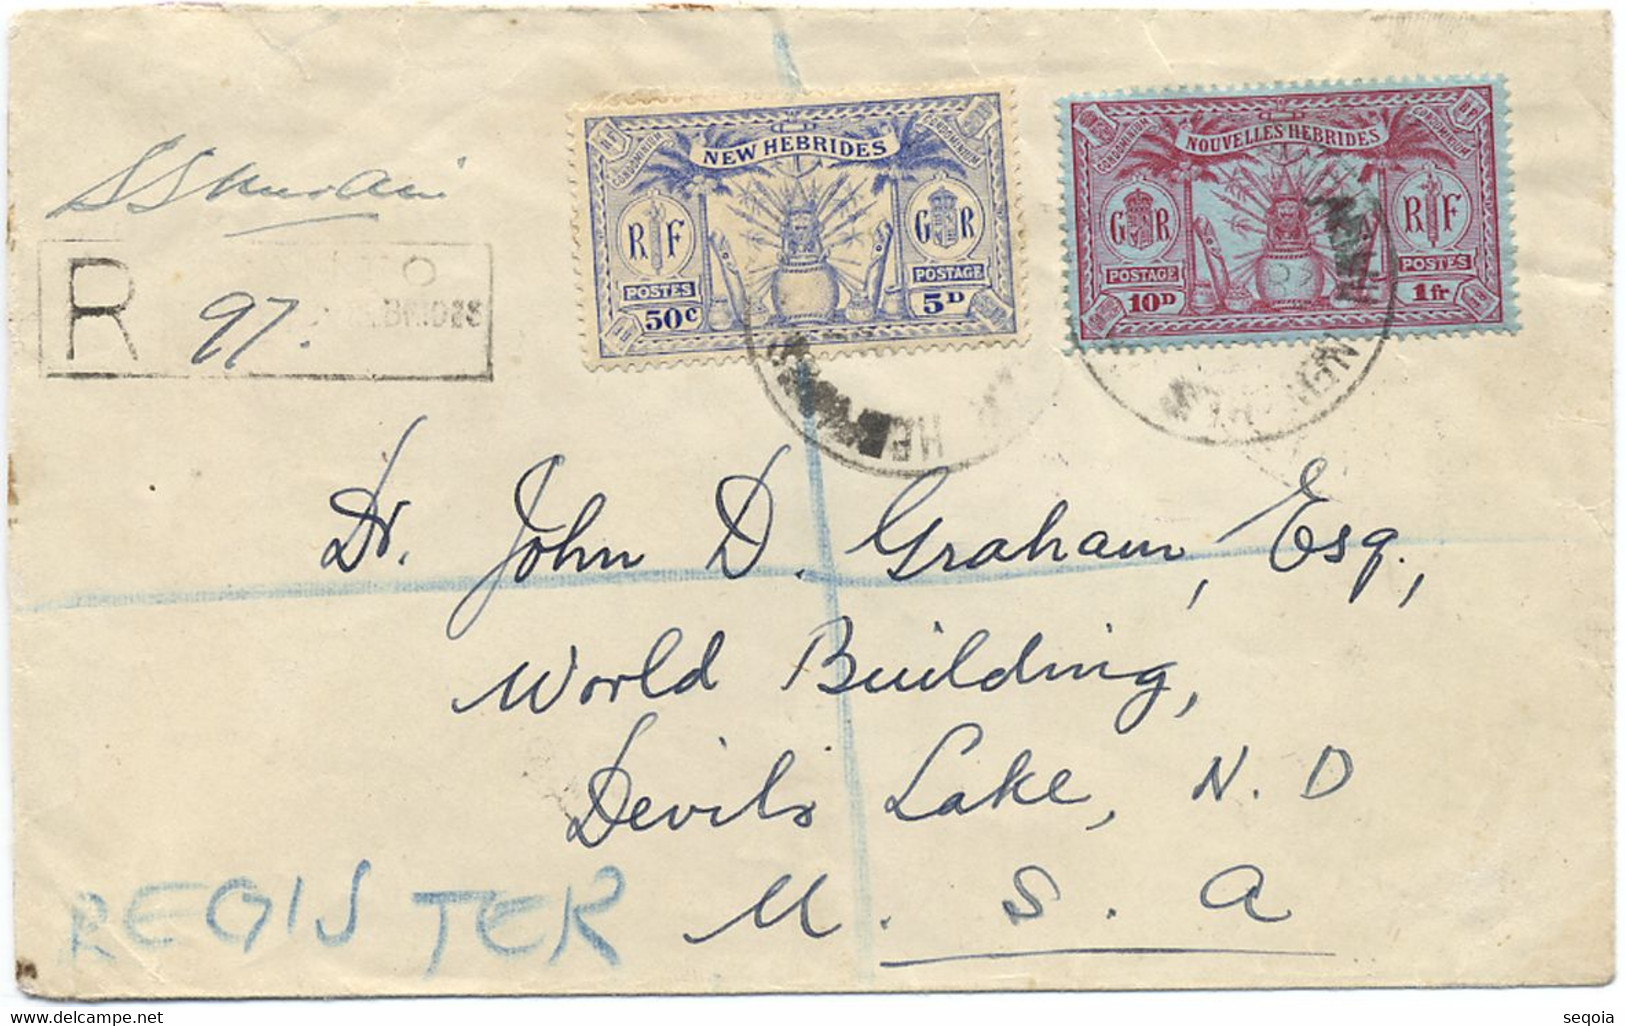 R
97.
RF
CONDOMINIUM
NEW HEBRIDES
CONDOMINIUM
R F
G R
POSTES
POSTAGE
50c
5D
CONDOMINIUM
NOUVELLES HEBRIDES
CONDOMINIUM
RF
G R
R F
POSTAGE
POSTES
10D
1fr
Dr. John D. Graham, Esq.,
World Building,
Devils Lake, N. D
U. S. A
REGISTER
www.delcampe.net
seqoia